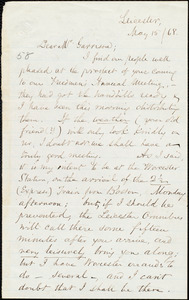 Leicester,
May 15/68.
Dear Mr. Garrison;
58 I find our people well
pleased at the prospect of your coming
to our Freedmen's Annual Meeting,
they had got the handbills ready &
I have been this morning distributing
them. If the weather (your old
friend?) will only look kindly on
us, I doubt not we shall have a
truly good meeting. As I said
it is my intent to be at the Worcester
Station, on the arrival of the
(Express) Train from Boston, Monday
afternoon; but if I should be
prevented, the Leicester Omnibus
will call there some fifteen
minutes after you arrive, and
very leisurely bring you along;
but I have Worcester errands to
do – several – and I can't
doubt that I shall be there.